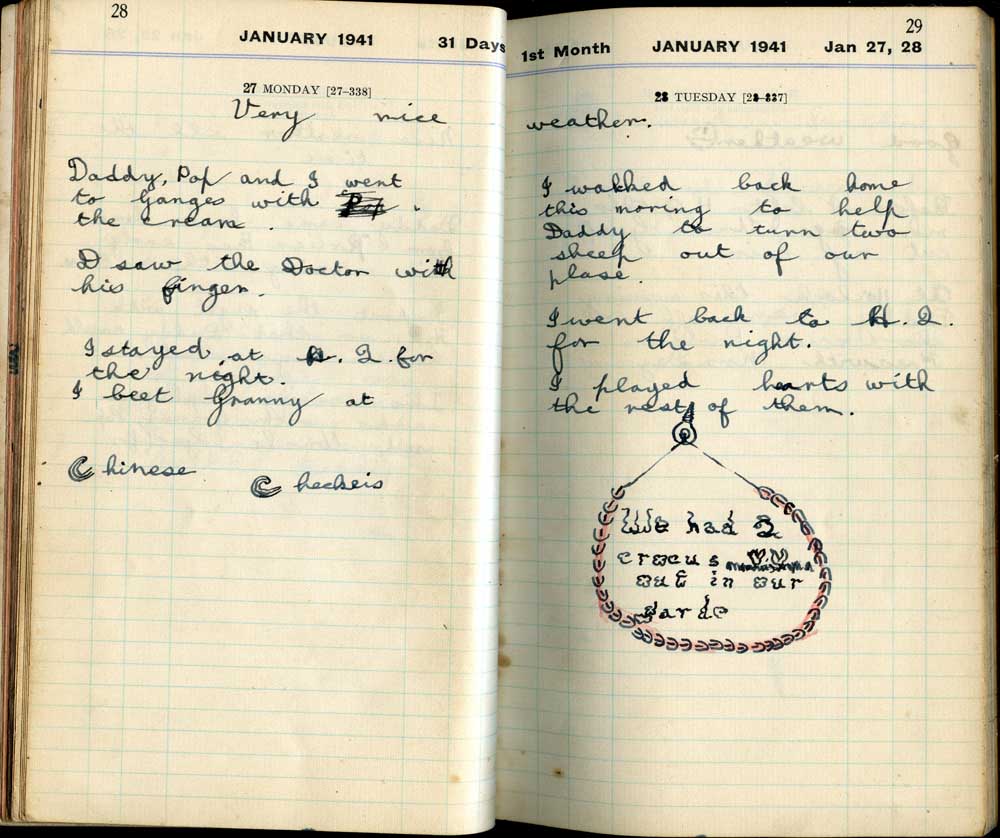 28
JANUARY 1941 31 Days
27 MONDAY [27-338]
Very nice
Daddy, Pop and I went
to Ganges with
the cream.
D saw the Doctor with
his finger.
I stayed at H. Q. for
the night.
I beet Granny at
Chinese Checkeis
29
1st Month JANUARY 1941 Jan 27, 28
28 TUESDAY [28-337]
weather.
I wakked back home
this moring to help
Daddy to turn two
sheep out of our
plase.
I went back to H. Q.
for the night.
I played hearts with
the rest of them.
We had 2
crocus
out in our
garde